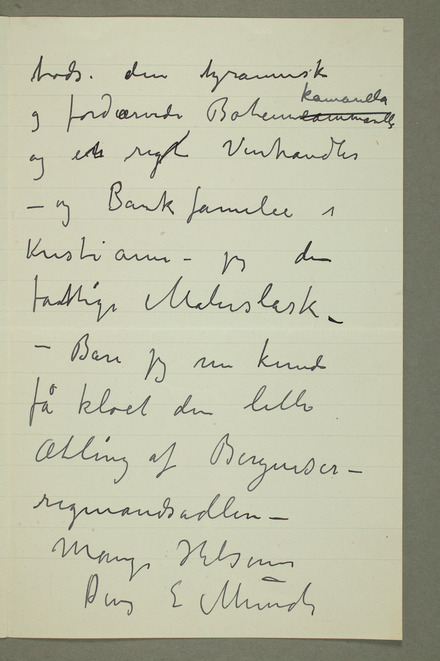 trods. den tyrannisk
og fordærvede Bohemekamarilla
og en rig Vinhandler
– og Bankfamilie i
Kristiania – jeg den
fattige Malerslask –
– Bare jeg nu kunde
få kloet den lille
Ætling af Bergenser –
rigmandsadlen –
Mange Hilsener
Din E Munch